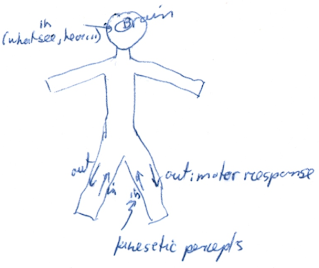 in
Brain
(what see, hear...)
out
in
in
out: motor response
kinesetic percepts